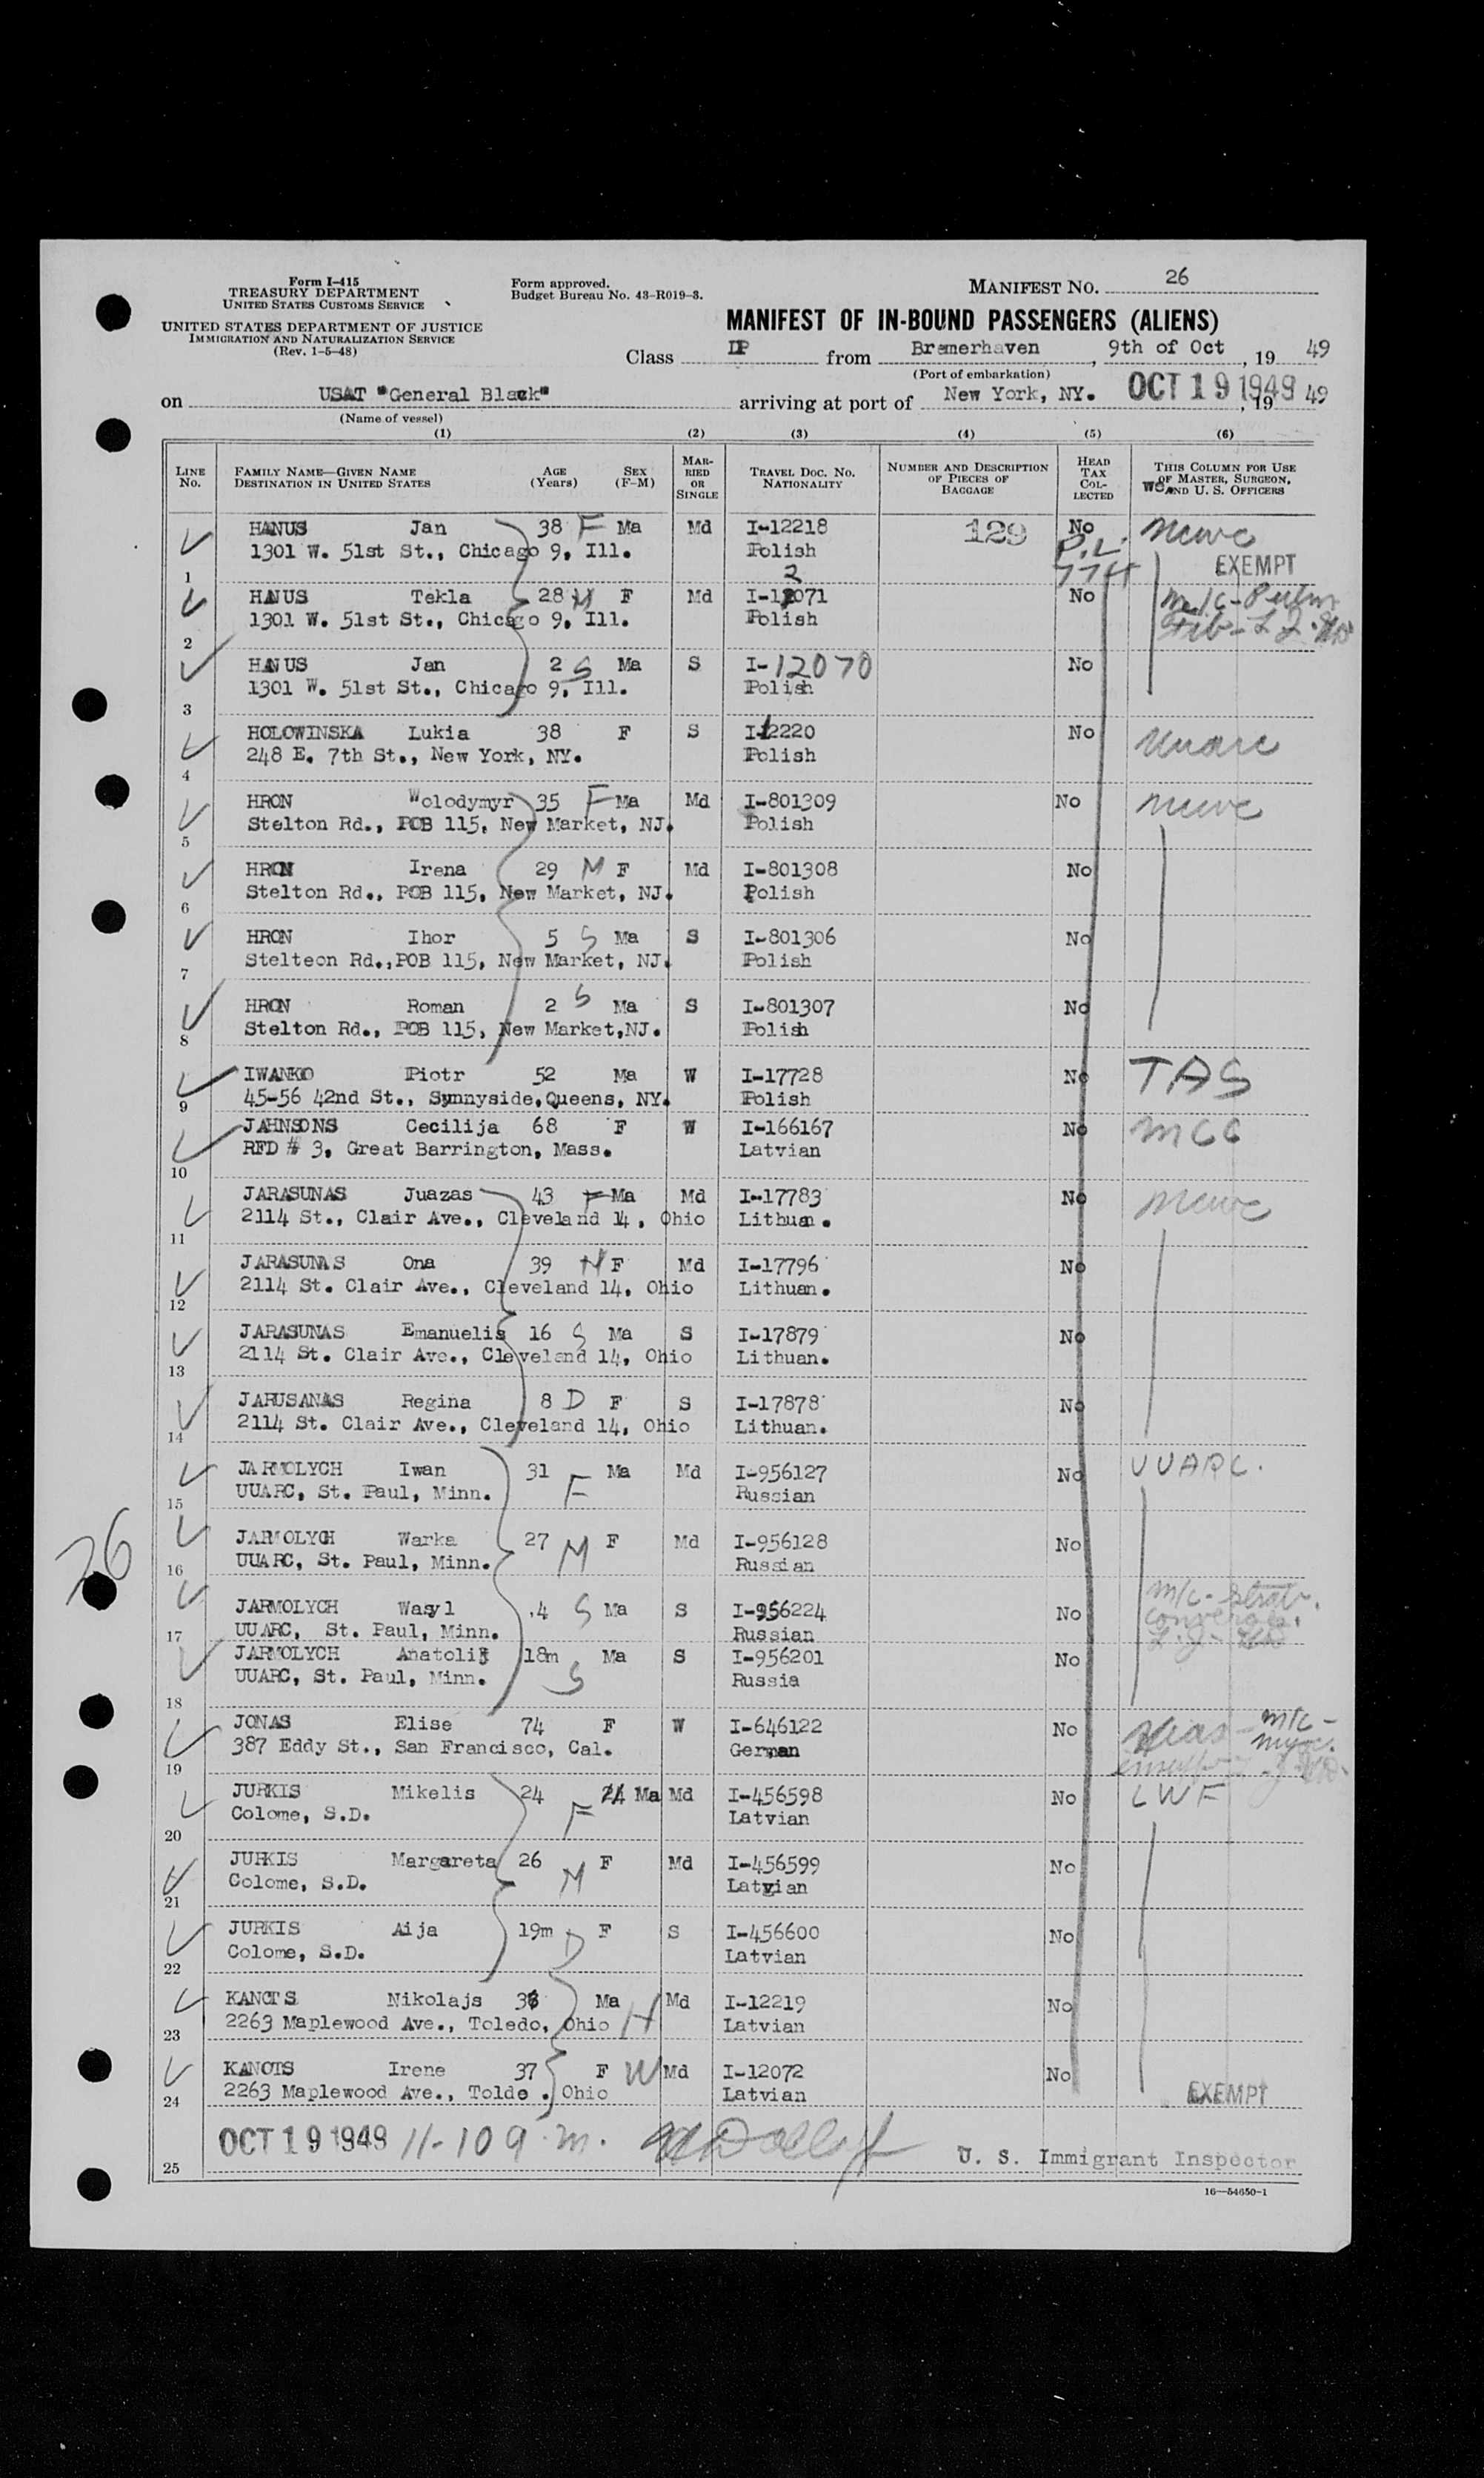 Form I-415
TREASURY DEPARTMENT
UNITED STATES CUSTOMS SERVICE
Form approved.
Budget Bureau No. 43-R019-3.
MANIFEST NO. 26
UNITED STATES DEPARTMENT OF JUSTICE
IMMIGRATION AND NATURALIZATION SERVICE
(Rev. 1-5-48)
MANIFEST OF IN-BOUND PASSENGERS (ALIENS)
Class DP from Bremerhaven, 9th of Oct, 19 49
(Port of embarkation)
on USAT "General Black" arriving at port of New York, NY. OCT 19 1949, 19 49
(Name of vessel)
(1) (2) (3) (4) (5) (6)
LINE NO. FAMILY NAME—GIVEN NAME DESTINATION IN UNITED STATES AGE (Years) SEX (F-M) MARRIED OR SINGLE TRAVEL DOC. NO. NATIONALITY NUMBER AND DESCRIPTION OF PIECES OF BAGGAGE HEAD TAX COLLECTED THIS COLUMN FOR USE OF MASTER, SURGEON, AND U. S. OFFICERS
HANUS Jan 38 F Ma Md I-12218 129 No ncwc
1301 W. 51st St., Chicago 9, Ill. Polish P.L. EXEMPT
1 774
HANUS Tekla 28 M F Md I-12071 No m/c-Pulm
1301 W. 51st St., Chicago 9, Ill. Polish Fib-
2
HANUS Jan 2 S Ma S I-12070 No
1301 W. 51st St., Chicago 9, Ill. Polish
3
HOLOWINSKA Lukia 38 F S I-12220 No uuarc
248 E. 7th St., New York, NY. Polish
4
HRON Wolodymyr 35 F Ma Md I-801309 No ncwc
Stelton Rd., POB 115, New Market, NJ. Polish
5
HRON Irena 29 M F Md I-801308 No
Stelton Rd., POB 115, New Market, NJ. Polish
6
HRON Ihor 5 S Ma S I-801306 No
Stelteon Rd.,POB 115, New Market, NJ. Polish
7
HRON Roman 2 S Ma S I-801307 No
Stelton Rd., POB 115, New Market,NJ. Polish
8
IWANKO Piotr 52 Ma W I-17728 No TAS
45-56 42nd St., Sunnyside,Queens, NY. Polish
9
JAHNSONS Cecilija 68 F W I-166167 No MCC
RFD # 3, Great Barrington, Mass. Latvian
10
JARASUNAS Juazas 43 F Ma Md I-17783 No ncwc
2114 St., Clair Ave., Cleveland 14, Ohio Lithuan.
11
JARASUNAS Ona 39 M F Md I-17796 No
2114 St. Clair Ave., Cleveland 14, Ohio Lithuan.
12
JARASUNAS Emanuelis 16 S Ma S I-17879 No
2114 St. Clair Ave., Cleveland 14, Ohio Lithuan.
13
JARUSANAS Regina 8 D F S I-17878 No
2114 St. Clair Ave., Cleveland 14, Ohio Lithuan.
14
JARMOLYCH Iwan 31 F Ma Md I-956127 No UUARC.
UUARC, St. Paul, Minn. Russian
15
JARMOLYCH Warka 27 M F Md I-956128 No
UUARC, St. Paul, Minn. Russian
16
26
JARMOLYCH Wasyl 4 S Ma S I-956224 No m/c-
UUARC, St. Paul, Minn. Russian
17
JARMOLYCH Anatolij 18m S Ma S I-956201 No
UUARC, St. Paul, Minn. Russia
18
JONAS Elise 74 F W I-646122 No Hias- m/c-
387 Eddy St., San Francisco, Cal. German
19
JURKIS Mikelis 24 F Ma Md I-456598 No LWF
Colome, S.D. Latvian
20
JURKIS Margareta 26 M F Md I-456599 No
Colome, S.D. Latvian
21
JURKIS Aija 19m D F S I-456600 No
Colome, S.D. Latvian
22
KANCTS Nikolajs Ma H Md I-12219 No
2263 Maplewood Ave., Toledo, Ohio Latvian
23
KANCTS Irene 37 F W Md I-12072 No
2263 Maplewood Ave., Toldo. Ohio Latvian EXEMPT
24
OCT 19 1949 11-10 a.m. U. S. Immigrant Inspector
25
16—54650-1